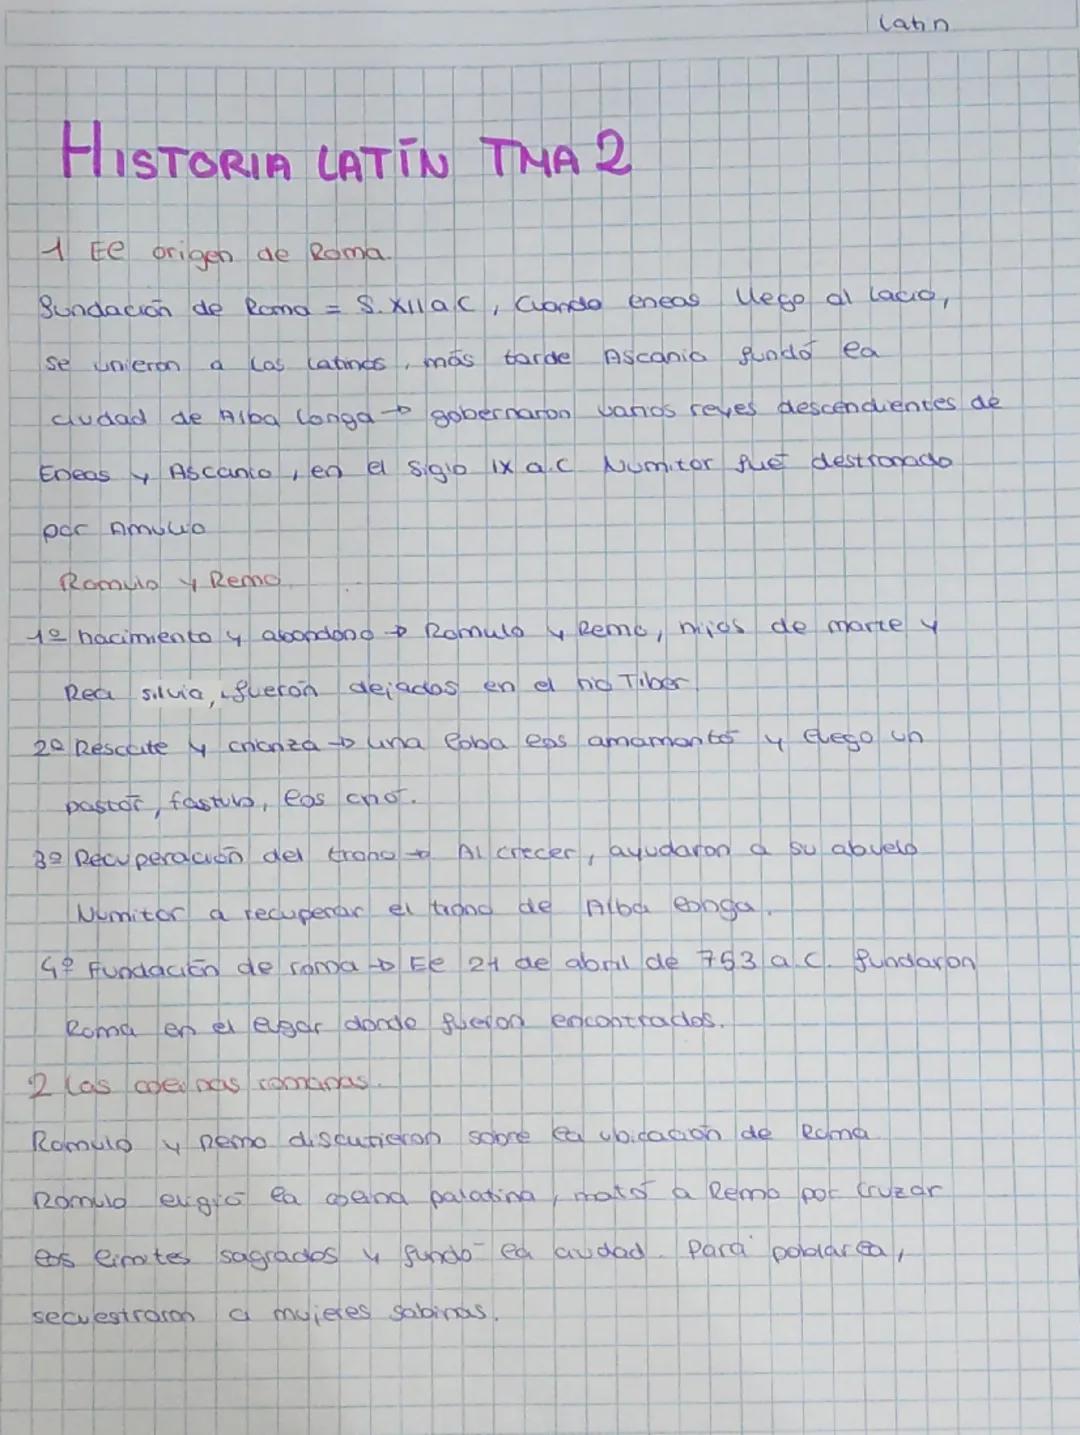 Latin
HISTORIA LATÍN TMA 2
1 El origen de Roma.
Fundación de Roma = S. XII a.C, Cuando eneas llego al Lacio,
se unieron a los latinos, más tarde Ascanio fundó la
ciudad de Alba Longa → gobernaron varios reyes descendientes de
Eneas y Ascanio, en el siglo IX a.C Numitor fué destronado
por Amulio
Romulo y Remo.
1º nacimiento y abandono → Romulo y Remo, hijos de marte y
Rea silvia, fueron dejados en el rio Tiber
2º Rescate y crianza → una loba los amamantó y luego un
pastor, fastulo, los crió.
3º Recuperación del trono → Al crecer, ayudaron a su abuelo
Numitor a recuperar el trono de Alba longa.
4º Fundación de roma → El 21 de abril de 753 a.C. fundaron
Roma en el lugar donde fueron encontrados.
2 Las colinas romanas.
Romulo y Remo discutieron sobre la ubicación de Roma
Romulo eligió la colina palatina, mató a Remo por cruzar
los limites sagrados y fundó la ciudad. Para poblarla,
secuestraron a mujeres sabinas.